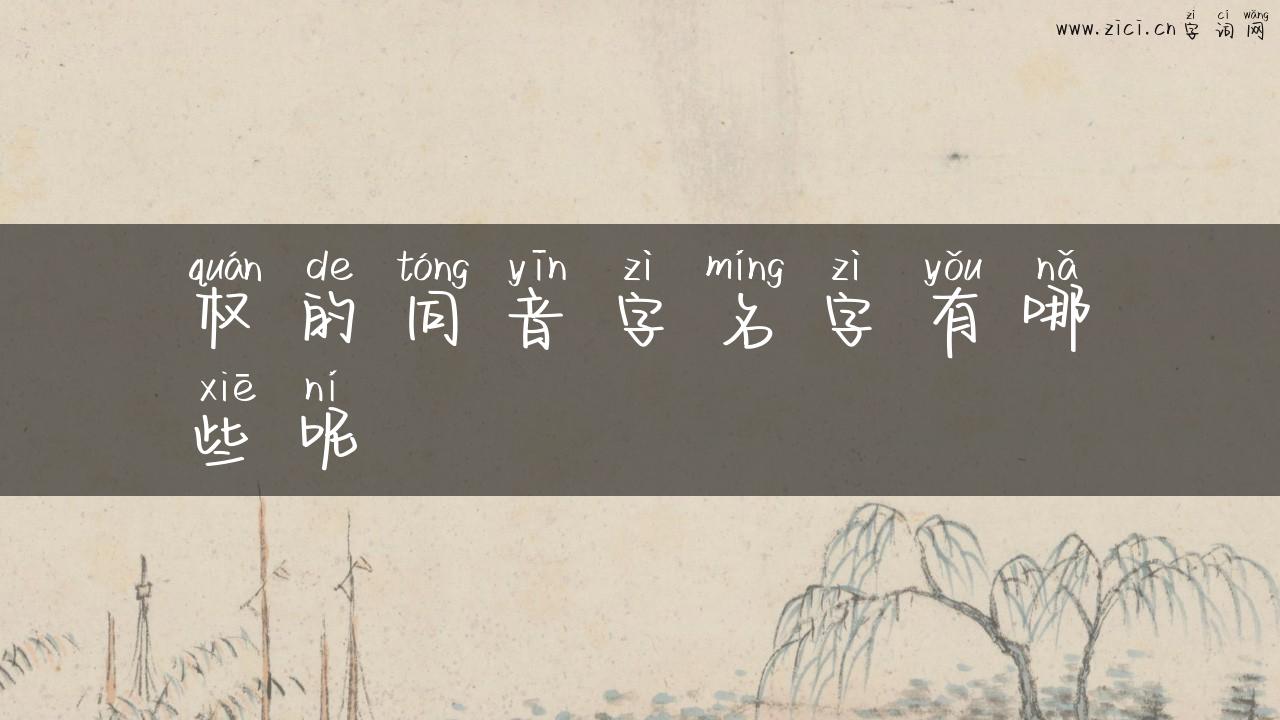 zì cí wǎng
www.zici.cn字词网
quán de tóng yīn zì míng zì yǒu nǎ
权的同音字名字有哪
xiē ní
些呢